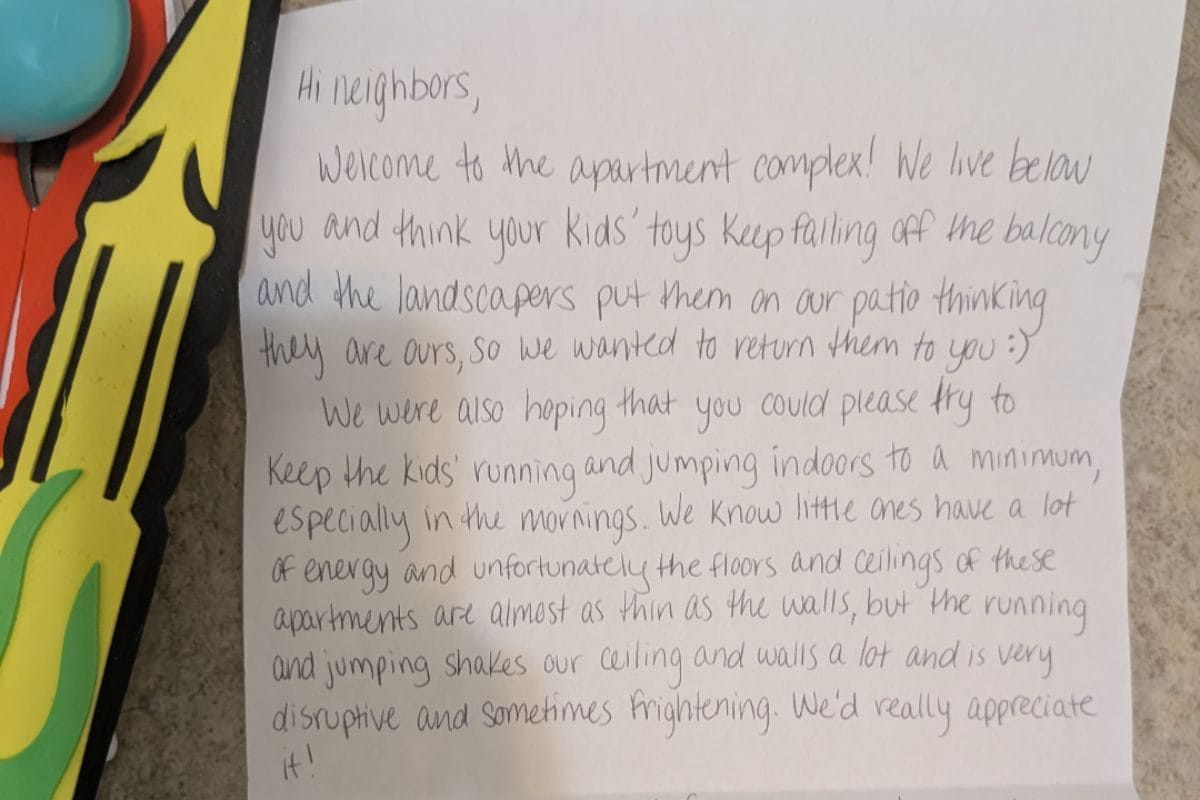 Hi neighbors,
Welcome to the apartment complex! We live below
you and think your kids' toys keep falling off the balcony
and the landscapers put them on our patio thinking
they are ours, so we wanted to return them to you :)
We were also hoping that you could please try to
keep the kids' running and jumping indoors to a minimum,
especially in the mornings. We know little ones have a lot
of energy and unfortunately the floors and ceilings of these
apartments are almost as thin as the walls, but the running
and jumping shakes our ceiling and walls a lot and is very
disruptive and sometimes frightening. We'd really appreciate
it!